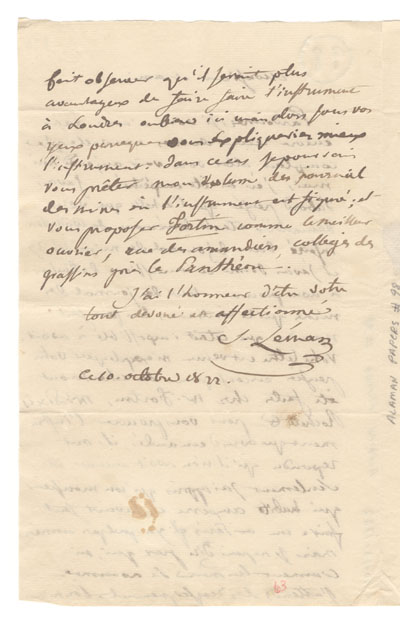 fait observer qu'il serait plus
avantageux de faire faire l'instrument
à Londres ou bien ici mais alors sous vos
yeux parceque vous expliqueriez mieux
l'instrument. dans ce cas je pourrais
vous prêter mon volume des journal
des mines où l'instrument est figuré; et
vous proposer Fortin comme le meilleur
ouvrier, rue des amandiers collège des
grassins près le Panthéon...
J'ai l'honneur d'être votre
tout dévoué et affectionné
Léman
Ce 10 octobre 1822.
ALAMAN PAPERS # 98
63